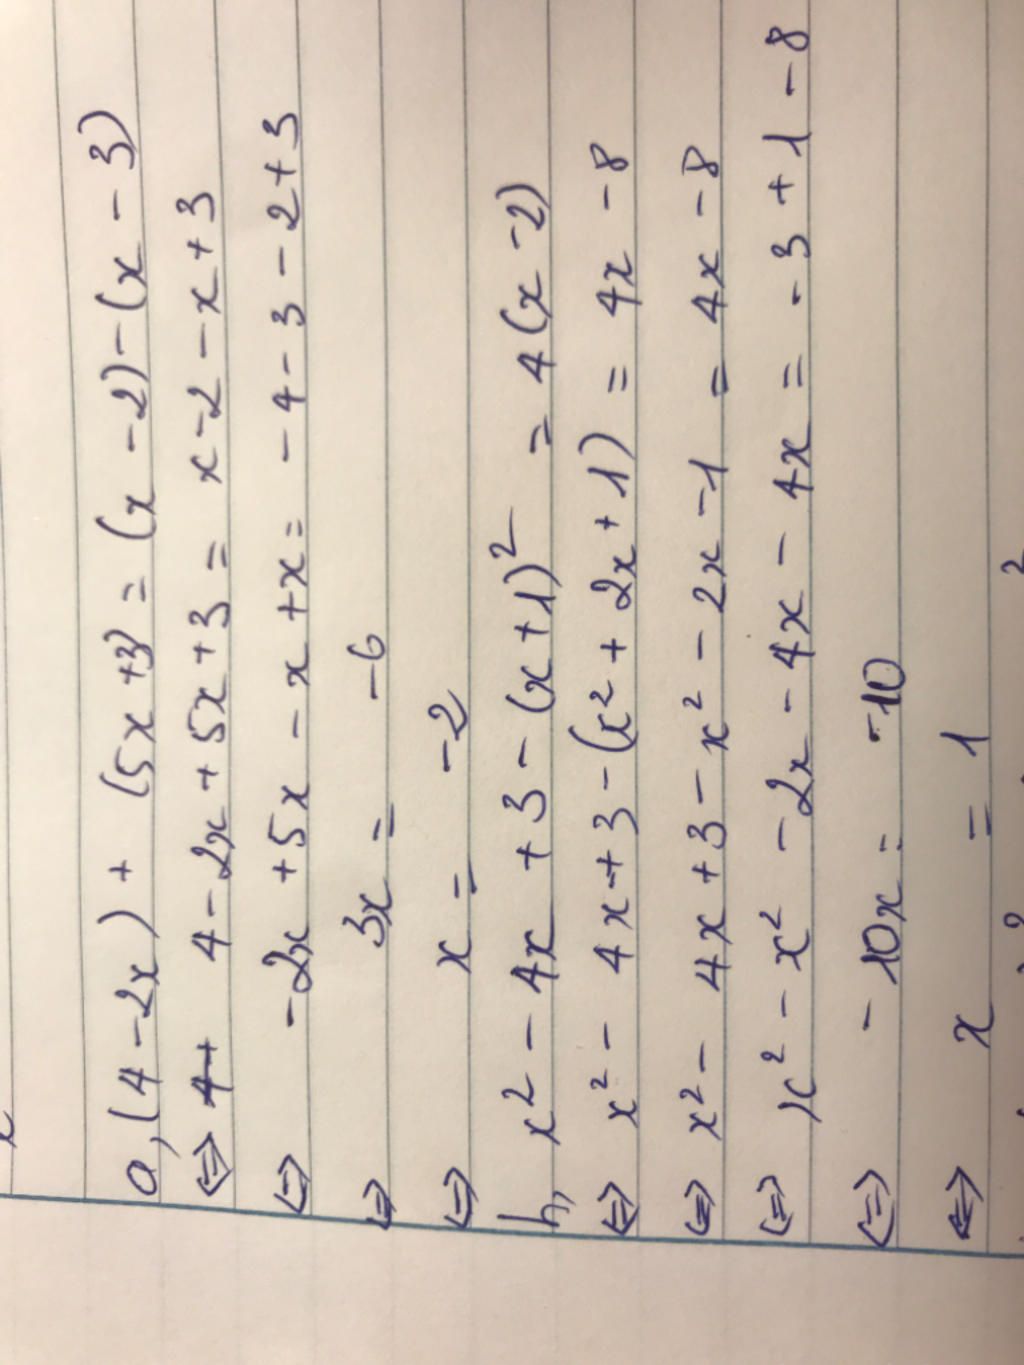 a, (4 - 2x) + (5x + 3) = (x - 2) - (x - 3)
⇔ 4 - 2x + 5x + 3 = x - 2 - x + 3
⇔ -2x + 5x - x + x = - 4 - 3 - 2 + 3
⇔ 3x = -6
⇔ x = -2
b, x² - 4x + 3 - (x + 1)² = 4(x - 2)
⇔ x² - 4x + 3 - (x² + 2x + 1) = 4x - 8
⇔ x² - 4x + 3 - x² - 2x - 1 = 4x - 8
⇔ x² - x² - 2x - 4x - 4x = -3 + 1 - 8
⇔ - 10x = -10
⇔ x = 1